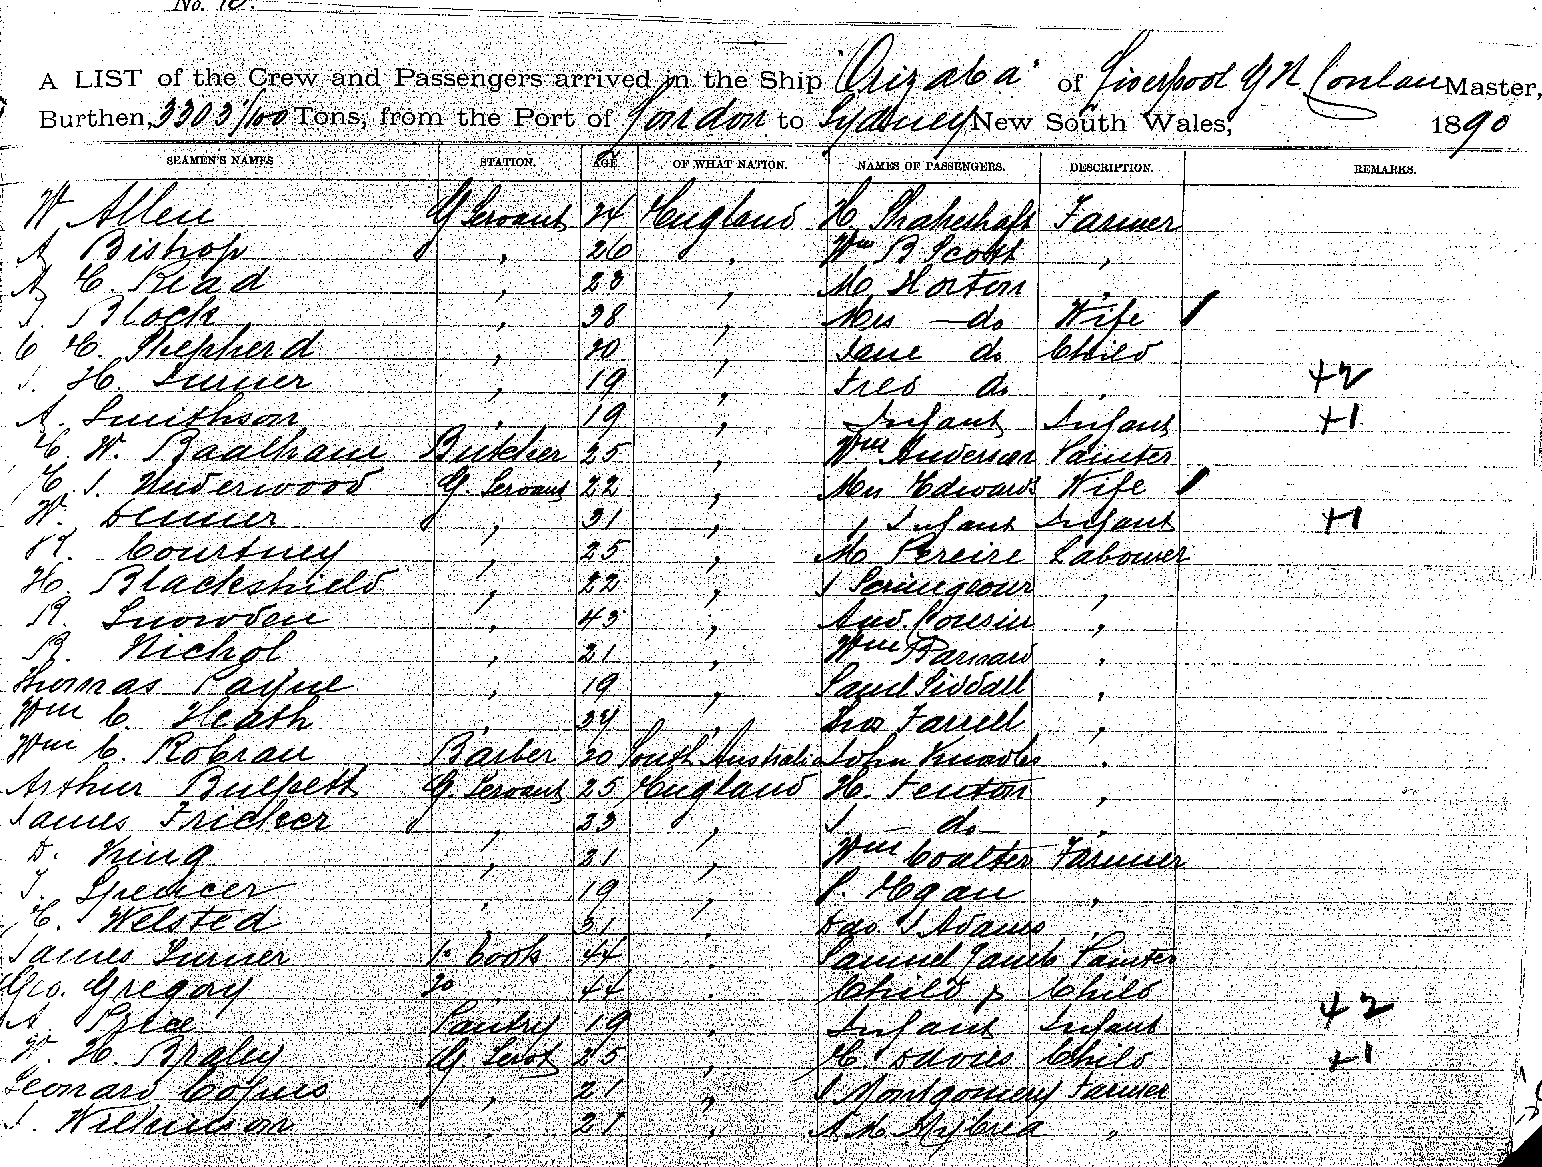 No. 10.
A LIST of the Crew and Passengers arrived in the Ship "Orizaba" of Liverpool G N Conlan Master,
Burthen, 3303 /100 Tons, from the Port of London to Sydney New South Wales, 1890
SEAMEN'S NAMES STATION. AGE OF WHAT NATION. NAMES OF PASSENGERS. DESCRIPTION. REMARKS.
W Allen G Servant 24 England H. Shakeshaft Farmer
A Bishop " 26 " Wm B Scott "
A C. Read " 23 " M Horton "
Block " 28 " Mrs — do Wife
C H. Shepherd " 20 " Jane do Child
H. Turner " 19 " Fred do " +2
A. Smithson " 19 " Infant Infant +1
W. Baalham Butcher 25 " Wm Anderson Painter
Underwood G. Servant 22 " Mrs Edwards Wife
W. Denner " 31 " " Infant Infant +1
Courtney " 25 " M Pereire Labourer
H. Blackshield " 22 " J Scrimgeour "
R. Snowden " 43 " And. Cousin "
R. Nichol " 21 " Wm Barnard "
Thomas Payne " 19 " Saml Siddall "
Wm C. Heath " 24 " Thos Farrell "
Wm C. Robran Barber 20 South Australia John Knowles "
Arthur Bulpett G. Servant 25 England H. Fenton "
James Fricker " 23 " J — do — "
D. King " 21 " Wm Coalter Farmer
T. Spencer " 19 " P. Egan "
Welsted " 31 " J Adams "
James Turner Cook 44 " Samuel Painter
Geo. Gregory do 44 " Child & Child
A. Pantry 19 " Infant Infant +2
W. H. Braley G. Servt 25 " Davies Child +1
Leonard " 21 " J Montgomery Farmer
J. Wilkinson " 21 " A M "